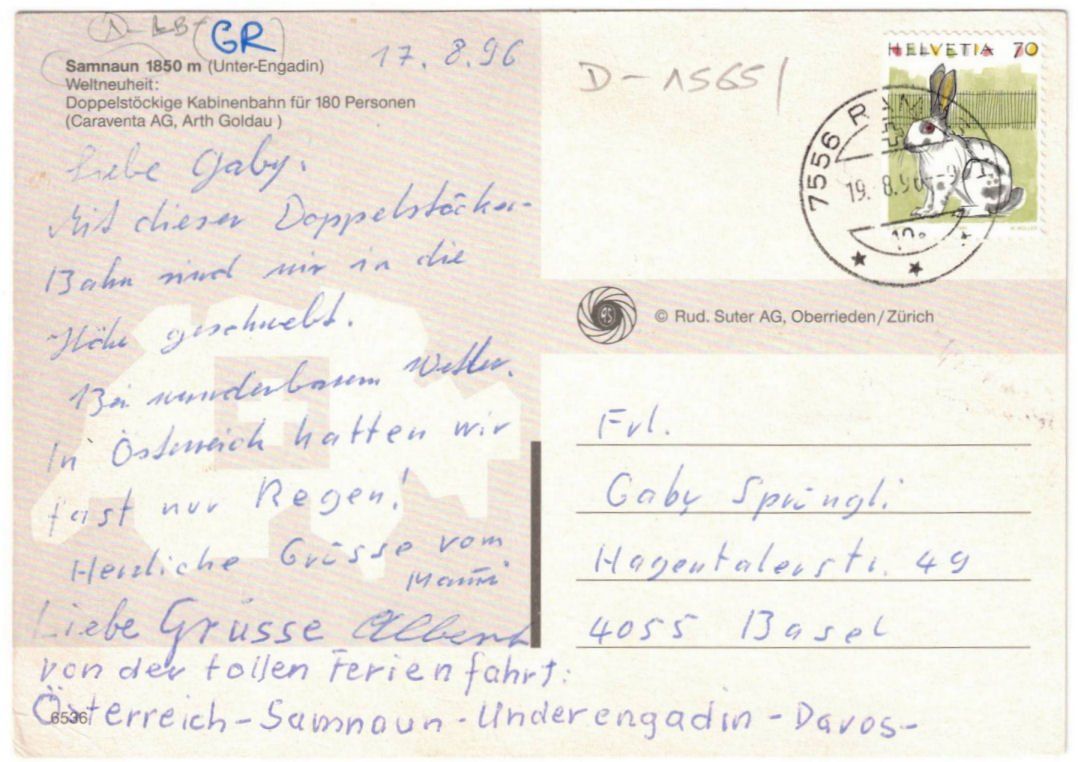 GR
17. 8. 96
Samnaun 1850 m (Unter-Engadin)
Weltneuheit:
Doppelstöckige Kabinenbahn für 180 Personen
(Caraventa AG, Arth Goldau )
Liebe Gaby.
Mit dieser Doppelstöcker-
Bahn sind wir in die
Höhe geschwebt.
Bei wunderbarem Wetter.
In Österreich hatten wir
fast nur Regen!
Herzliche Grüsse vom
Mami
Liebe Grüsse Albert
von der tollen Ferienfahrt:
Österreich-Samnaun-Underengadin-Davos-
6536
D-1565/
HELVETIA 70
7556 R
19. 8. 96
© Rud. Suter AG, Oberrieden/Zürich
Frl.
Gaby Sprüngli
Hagentalerstr. 49
4055 Basel